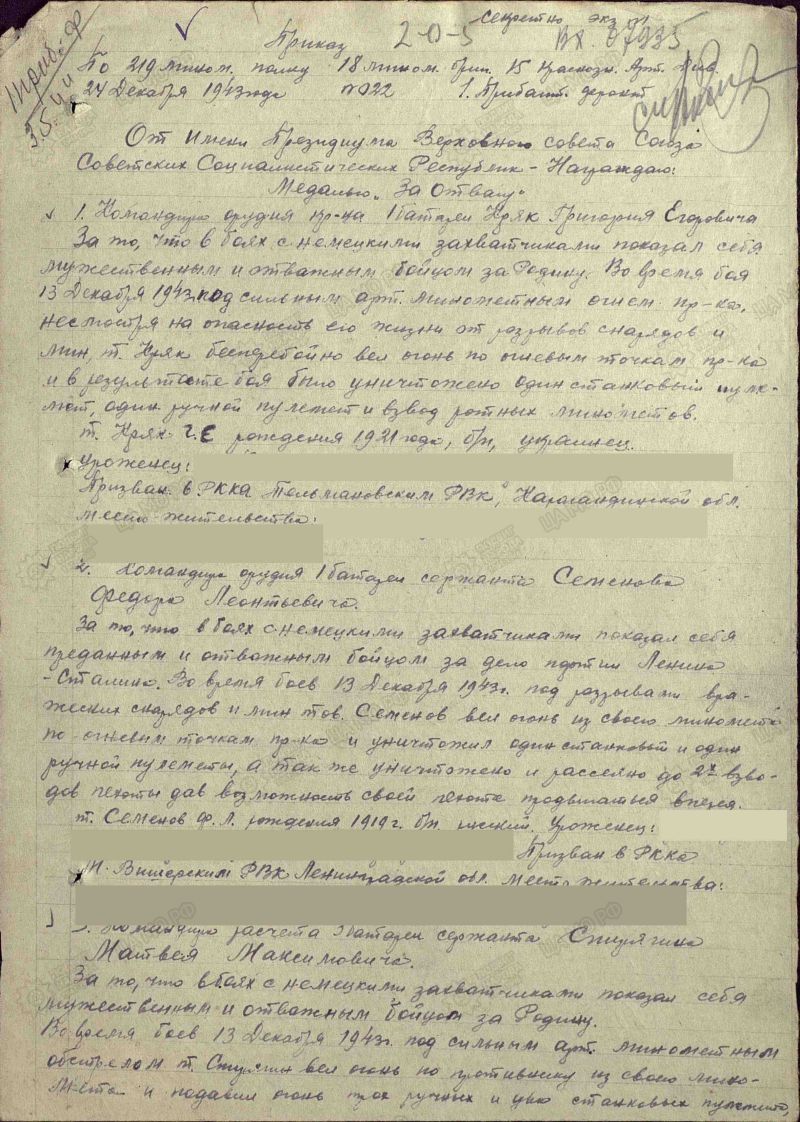 секретно экз №1
Приказ 2-0-5 Вх. 07935
По 219 мином. полку 18 мином. бриг. 15 Краснозн. Арт. Див.
24 Декабря 1943 года №022 1. Прибалт. фронт
От Имени Президиума Верховного совета Союза
Советских Социалистических Республик - Награждаю:
Медалью "За Отвагу"
1. Командира орудия кр-на 1 батареи Кряк Григория Егоровича
За то, что в боях с немецкими захватчиками показал себя
мужественным и отважным бойцом за Родину. Во время боя
13 Декабря 1943г. под сильным арт. минометным огнем пр-ка,
несмотря на опасность его жизни от разрывов снарядов и
мин, т. Кряк бесперебойно вел огонь по огневым точкам пр-ка
и в результате боя было уничтожено один станковый пуле-
мет, один ручной пулемет и взвод ротных минометов.
т. Кряк Г.Е рождения 1921 года, б/п, украинец.
Уроженец:
Призван в РККА Тельмановским РВК, Карагандинской обл.
место жительства:
2. Командира орудия 1 батареи сержанта Семенова
Федора Леонтьевича.
За то, что в боях с немецкими захватчиками показал себя
преданным и отважным бойцом за дело партии Ленина
-Сталина. Во время боев 13 Декабря 1943г. под разрывами вра-
жеских снарядов и мин тов. Семенов вел огонь из своего миномета
по огневым точкам пр-ка и уничтожил один станковый и один
ручной пулеметы, а так же уничтожено и рассеяно до 2х взво-
дов пехоты дав возможность своей пехоте продвигаться вперед.
т. Семенов Ф.Л. рождения 1919 г. б/п. русский. Уроженец:
Призван в РККА
М-Вишерским РВК Ленинградской обл. место жительства:
3. Командира расчета батареи сержанта
Матвея Максимовича.
За то, что в боях с немецкими захватчиками показал себя
мужественным и отважным бойцом за Родину.
Во время боев 13 Декабря 1943г. под сильным арт. минометным
обстрелом т. вел огонь по противнику из своего мино-
мета и подавил огонь трех ручных и станковых пулемета,